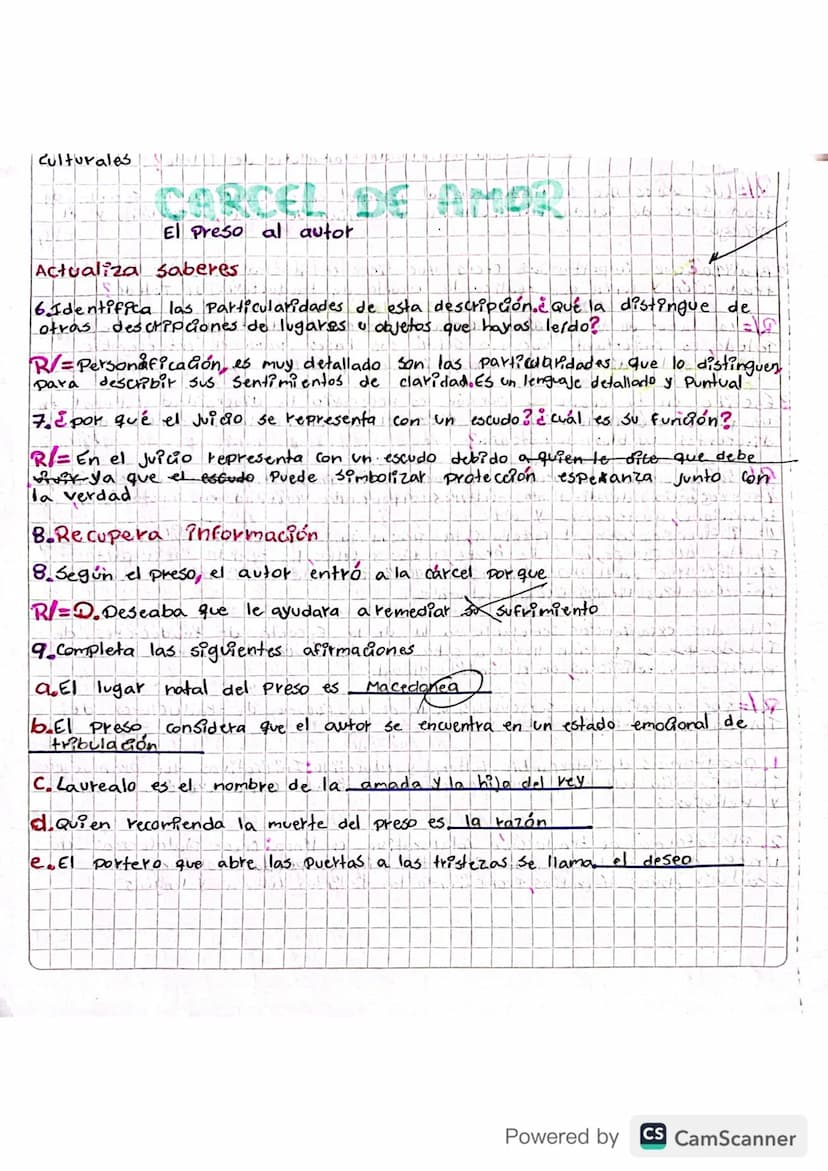 culturales
CARCEL DE AMOR
El preso al autor
Actualiza saberes
6. Identifica las particularidades de esta descripción. ¿Qué la distingue de
otras descripciones de lugares u objetos que hayas leído?
R/= Personificación, es muy detallado son las particularidades que lo distinguen
para describir sus sentimientos de claridad. Es un lenguaje detallado y puntual
7. ¿por qué el juicio se representa con un escudo? ¿cuál es su función?
R/= En el juicio representa con un escudo debido a quien le dice que debe
vivir ya que el escudo puede simbolizar protección esperanza junto con
la verdad
8. Recupera información
8. Según el preso, el autor entró a la cárcel porque
R/= D. Deseaba que le ayudara a remediar su sufrimiento
9. Completa las siguientes afirmaciones
a. El lugar natal del preso es Macedonea
b. El preso considera que el autor se encuentra en un estado emocional de
tribulación
C. Laurealo es el nombre de la amada y la hija del rey
d. Quien recomienda la muerte del preso es la razón
e. El portero que abre las puertas a las tristezas se llama el deseo
Powered by CS CamScanner